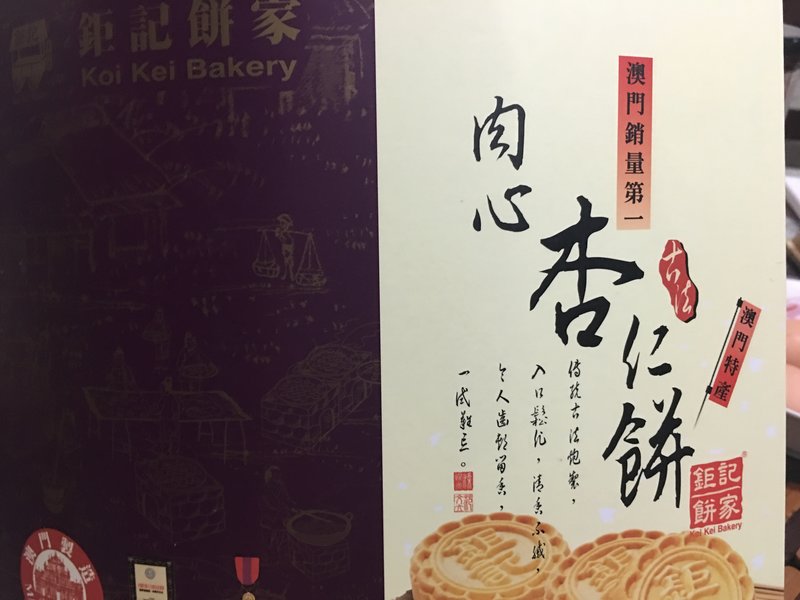 鉅記餅家
Koi Kei Bakery
澳門銷量第一
肉心
杏仁餅
古法
澳門特產
傳統古法炮製,
入口鬆化,清香不膩,
令人齒頰留香,
一試難忘。
鉅記
餅家
Koi Kei Bakery
澳門製造